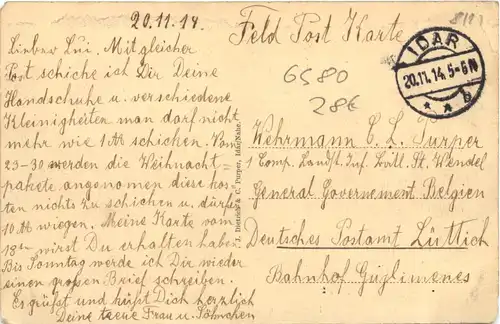 20.11.14
Feld Post Karte
Lieber Lui, Mit gleicher
Post schicke ich Dir Deine
Handschuhe u. verschiedene
Kleinigkeiten man darf nicht
mehr wie 1 ℔ schicken. Vom
23-30 werden die Weihnacht-
pakete angenomen diese kos-
ten nichts zu schicken u. dürfen
10 ℔ wiegen. Meine Karte vom
18ten wirst Du erhalten haben.
Bis Sonntag werde ich Dir wieder
einen großen Brief schreiben.
Es grüßt und küßt Dich herzlich
Deine teure Frau u. Söhnchen
IDAR
20.11.14.5-6N
* * b
6580
28€
Wehrmann C. L. Purper
1 Comp. Landst. Inf. Batl. St. Wendel
General Governement Belgien
Deutsches Postamt Lüttich
Bahnhof